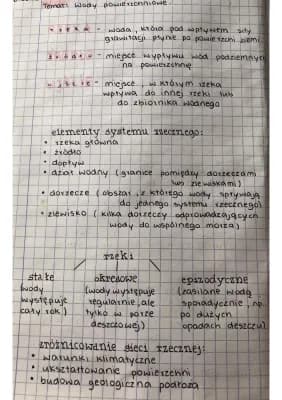 Temat: Wody powierzchniowe.
• rzeka - woda, która pod wpływem siły
grawitacji płynie po powierzchni ziemi.
• źródło - miejsce wypływu wód podziemnych
na powierzchnię
• ujście - miejsce, w którym rzeka
wpływa do innej rzeki lub
do zbiornika wodnego
elementy systemu rzecznego:
• rzeka główna
• źródło
• dopływ
• dział wodny (granice pomiędzy dorzeczami
lub zlewiskami)
• dorzecze (obszar, z którego wody spływają
do jednego systemu rzecznego)
• zlewisko (kilka dorzeczy odprowadzających
wody do wspólnego morza)
rzeki
stałe okresowe epizodyczne
(wody (wody występuje (zasilane wodą
występuje regularnie, ale sporadycznie, np.
cały rok) tylko w porze po dużych
deszczowej) opadach deszczu)
zróżnicowanie sieci rzecznej:
• warunki klimatyczne
• ukształtowanie powierzchni
• budowa geologiczna podłoża